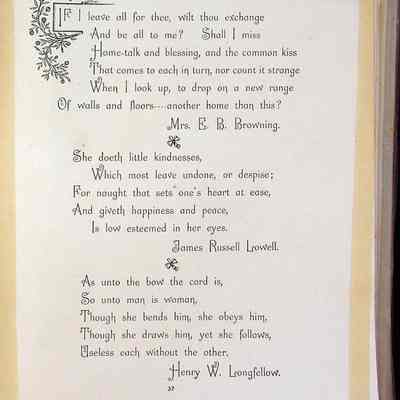 IF I leave all for thee, wilt thou exchange
And be all to me? Shall I miss
Home-talk and blessing, and the common kiss
That comes to each in turn, nor count it strange
When I look up, to drop on a new range
Of walls and floors....another home than this?
Mrs. E. B. Browning.
She doeth little kindnesses,
Which most leave undone, or despise;
For naught that sets one's heart at ease,
And giveth happiness and peace,
Is low esteemed in her eyes.
James Russell Lowell.
As unto the bow the cord is,
So unto man is woman,
Though she bends him, she obeys him,
Though she draws him, yet she follows,
Useless each without the other.
Henry W. Longfellow.
37